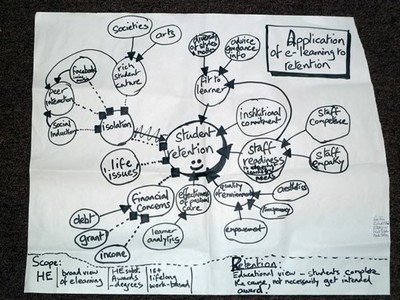 Application
of e-learning to
retention
Societies
arts
diversity
of styles
modes
advice
guidance
info
Facebook
rich
student
culture
peer
interaction
social
induction
isolation
fit to
learner
institutional
commitment
Staff
Competence
Staff
empathy
Staff
readiness
Student
retention
life
issues
financial
concerns
effectiveness
of pastoral
care
quality
environment
aesthetics
transparency
empowerment
debt
grant
income
learner
analytics
Scope:
HE
broad view
of elearning
HE inc
Awards
degrees
16+
lifelong
work-based
Retention:
Educational view - students complete
the course, not necessarily get intended
award.